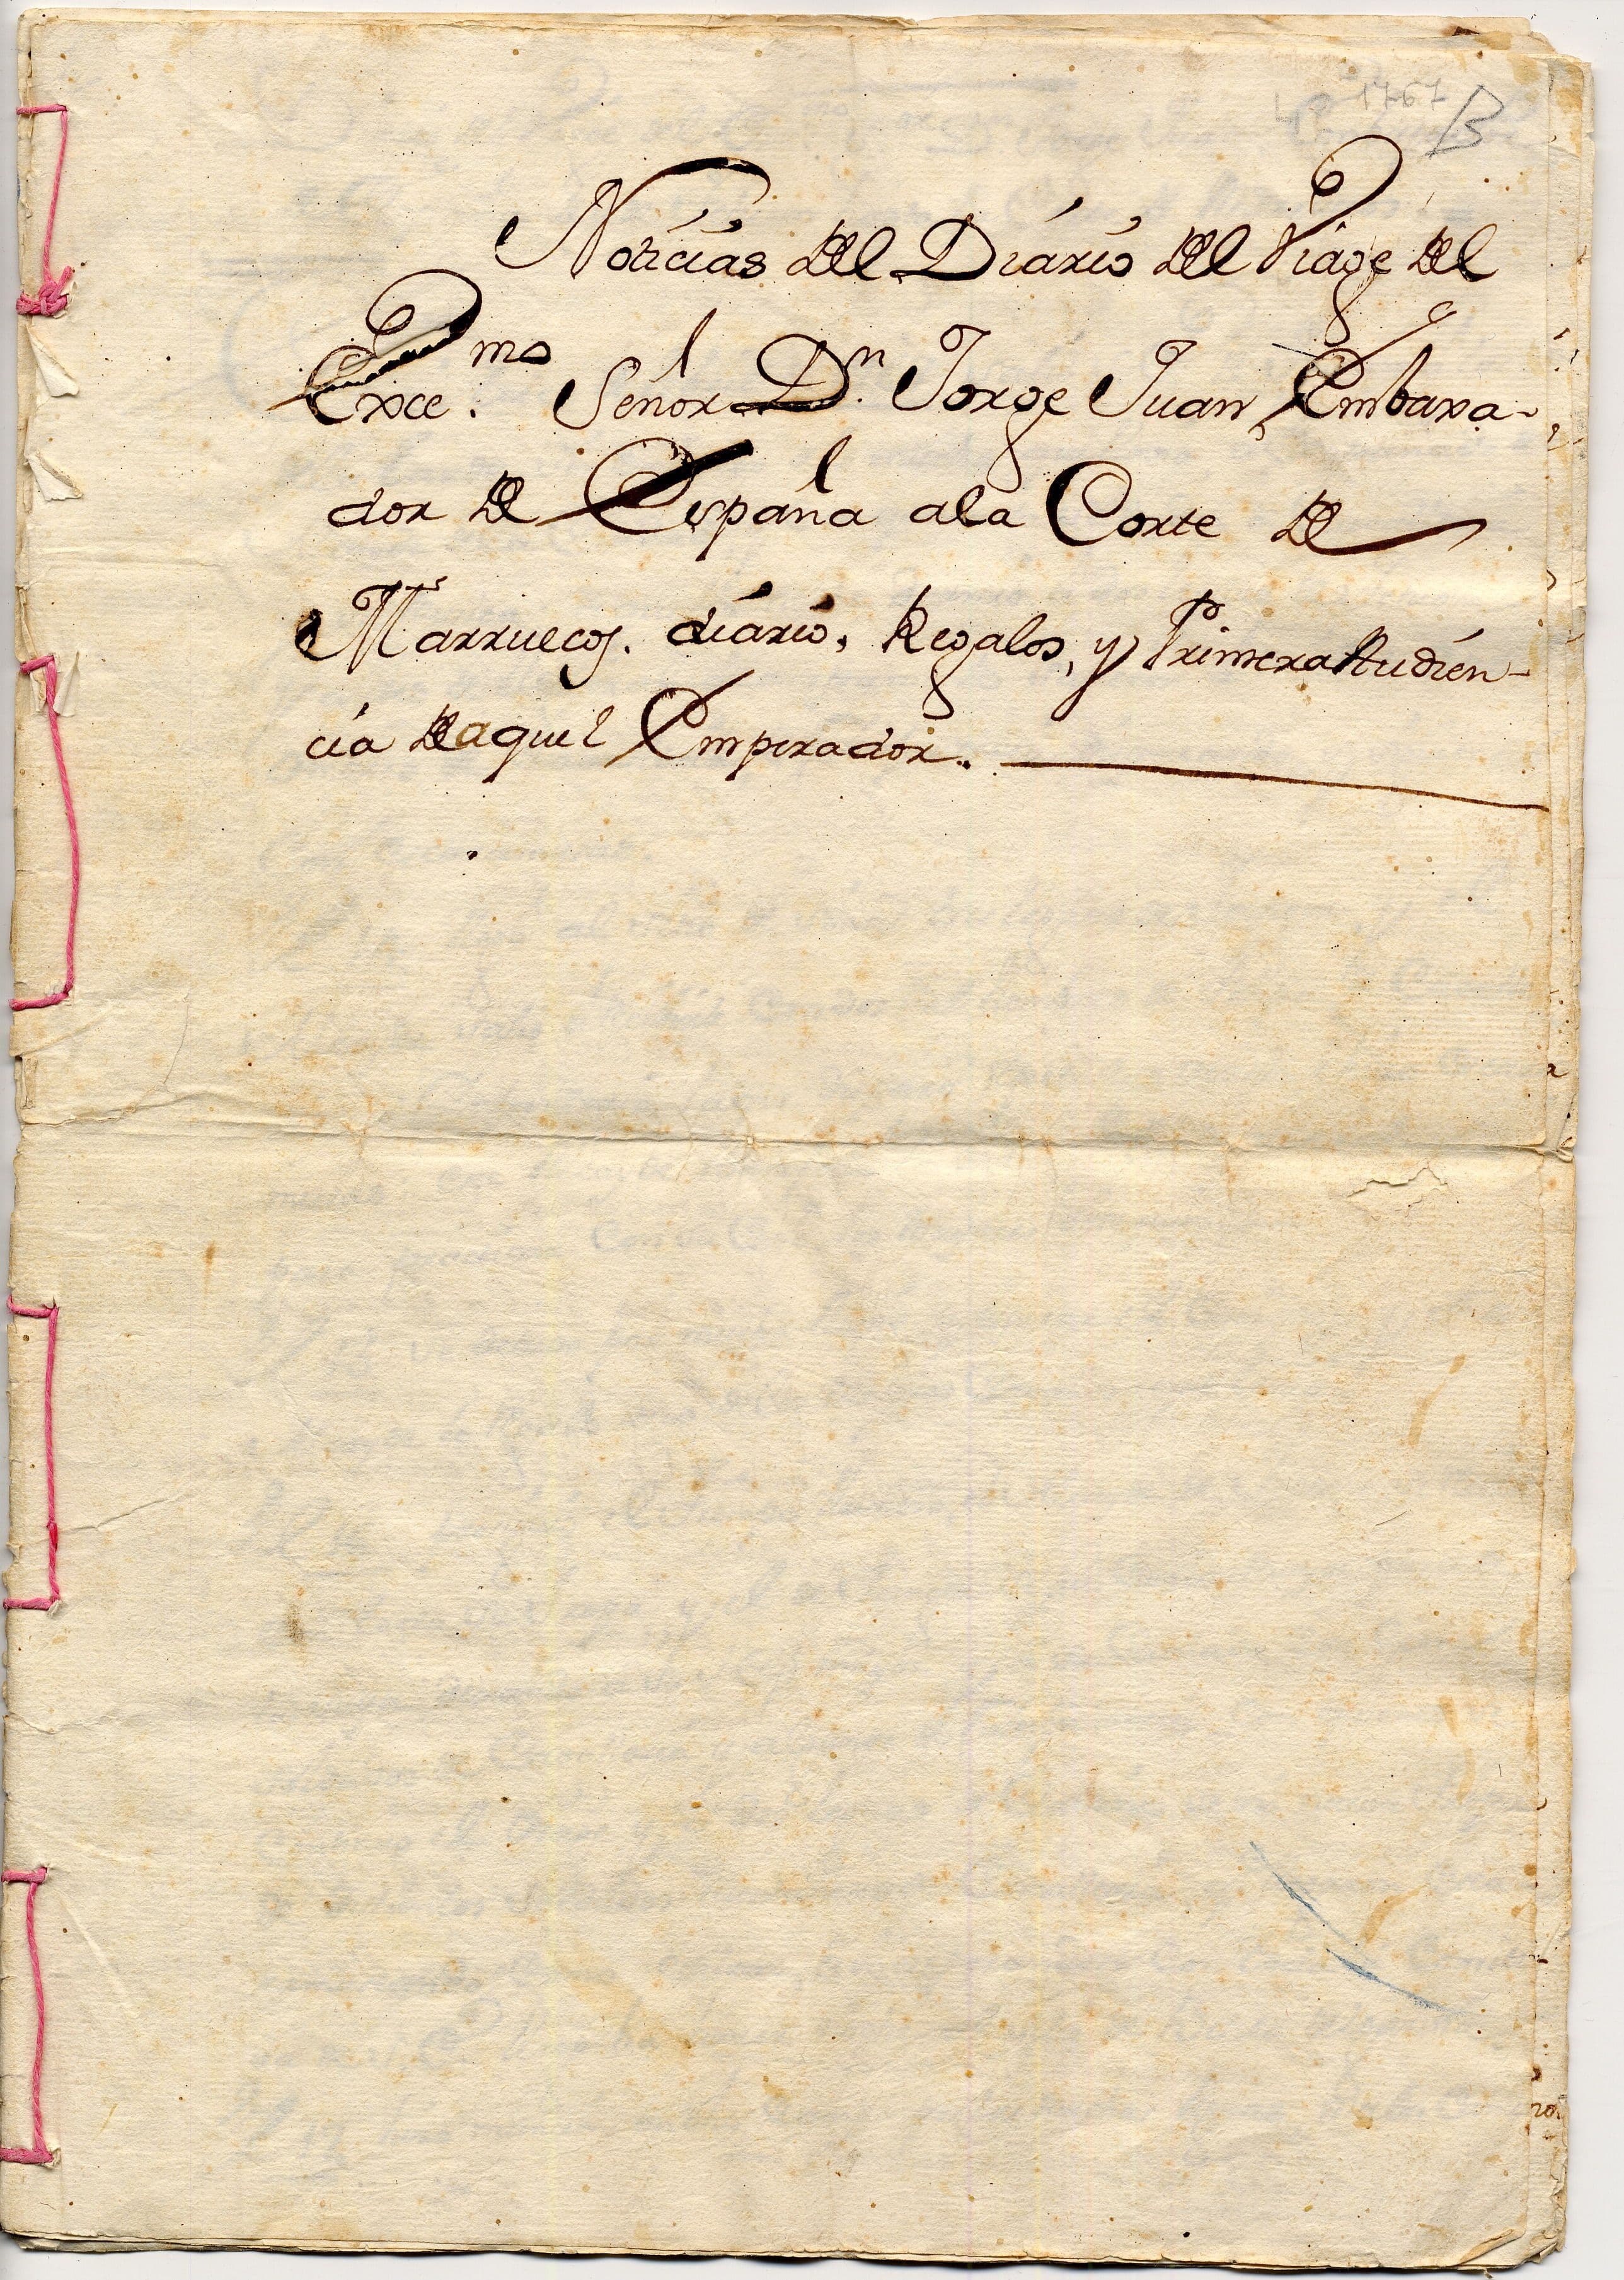 1767 B
Noticias del Diario del Viage del
Exce.mo Señor Dn. Jorge Juan, Embaxa-
dor de España ala Corte de
Marruecos. diario, Regalos, y Primera Audien-
cia deaquel Emperador..